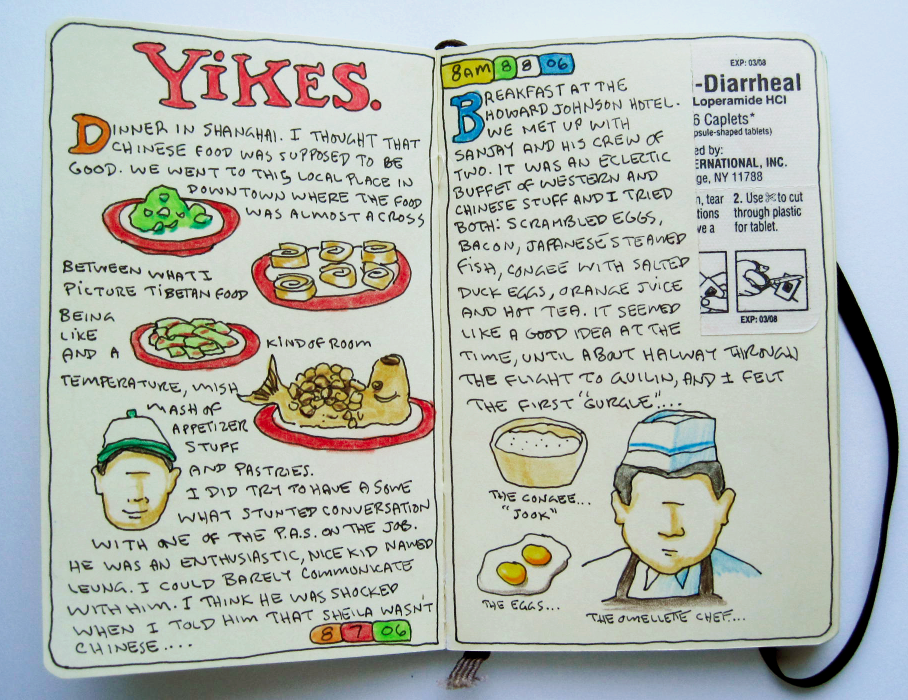 YiKES.
DINNER IN SHANGHAI. I THOUGHT THAT
CHINESE FOOD WAS SUPPOSED TO BE
GOOD. WE WENT TO THIS LOCAL PLACE IN
DOWNTOWN WHERE THE FOOD
WAS ALMOST ACROSS
BETWEEN WHAT I
PICTURE TIBETAN FOOD
BEING
LIKE
AND A KIND OF ROOM
TEMPERATURE, MISH
MASH OF
APPETIZER
STUFF
AND PASTRIES.
I DID TRY TO HAVE A SOME
WHAT STUNTED CONVERSATION
WITH ONE OF THE P.A.S. ON THE JOB.
HE WAS AN ENTHUSIASTIC, NICE KID NAMED
LEUNG. I COULD BARELY COMMUNICATE
WITH HIM. I THINK HE WAS SHOCKED
WHEN I TOLD HIM THAT SHEILA WASN'T
CHINESE....
8 7 06
8AM 8 8 06
BREAKFAST AT THE
HOWARD JOHNSON HOTEL.
WE MET UP WITH
SANJAY AND HIS CREW OF
TWO. IT WAS AN ECLECTIC
BUFFET OF WESTERN AND
CHINESE STUFF AND I TRIED
BOTH: SCRAMBLED EGGS,
BACON, JAPANESE STEAMED
FISH, CONGEE WITH SALTED
DUCK EGGS, ORANGE JUICE
AND HOT TEA. IT SEEMED
LIKE A GOOD IDEA AT THE
TIME, UNTIL ABOUT HALWAY THROUGH
THE FLIGHT TO GUILIN, AND I FELT
THE FIRST "GURGLE"....
THE CONGEE...
"JOOK"
THE EGGS...
THE OMELLETE CHEF....
EXP: 03/08
-Diarrheal
Loperamide HCl
6 Caplets*
psule-shaped tablets)
ed by:
ERNATIONAL, INC.
ge, NY 11788
n, tear
tions
ve a
2. Use ✂ to cut
through plastic
for tablet.
EXP: 03/08